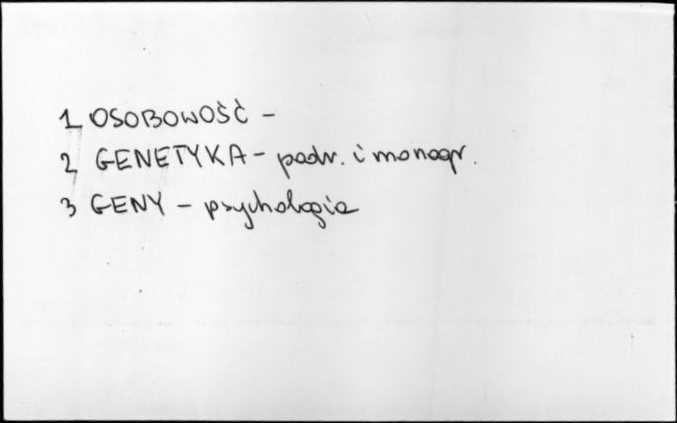 1 OSOBOWOŚĆ -
2 GENETYKA - podr. i monogr.
3 GENY - psychologia